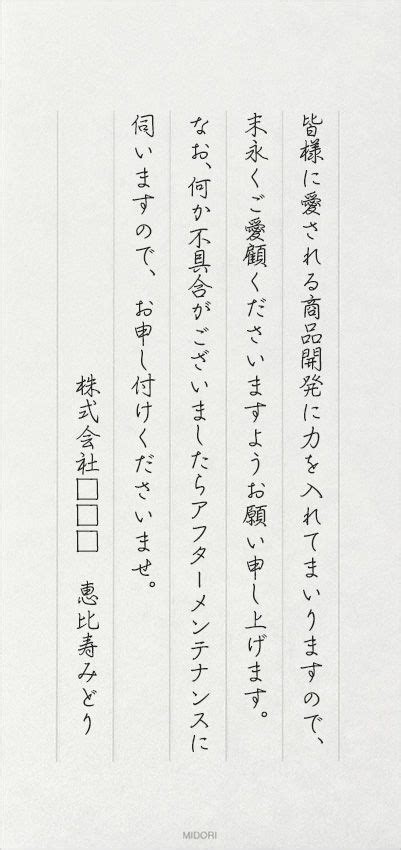 皆様に愛される商品開発に力を入れてまいりますので、
末永くご愛顧くださいますようお願い申し上げます。
なお、何か不具合がございましたらアフターメンテナンスに
伺いますので、お申し付けくださいませ。
株式会社□□□　恵比寿みどり
MIDORI